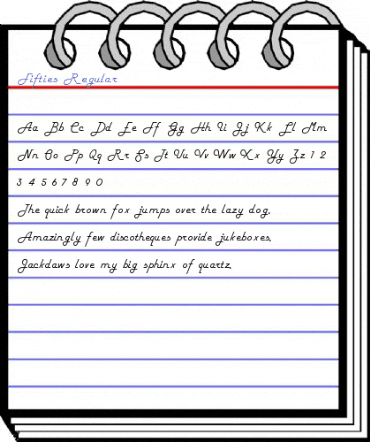 Fifties Regular
Aa Bb Cc Dd Ee Ff Gg Hh Ii Jj Kk Ll Mm
Nn Oo Pp Qq Rr Ss Tt Uu Vv Ww Xx Yy Zz 1 2
3 4 5 6 7 8 9 0
The quick brown fox jumps over the lazy dog.
Amazingly few discotheques provide jukeboxes.
Jackdaws love my big sphinx of quartz.